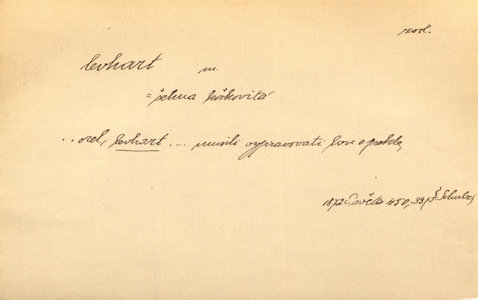 zool.
levhart m.
= šelma kočkovitá
.. orel, levhart ... musili vypravovati
1872 Osvěta 450, 33 (F. Schulz)